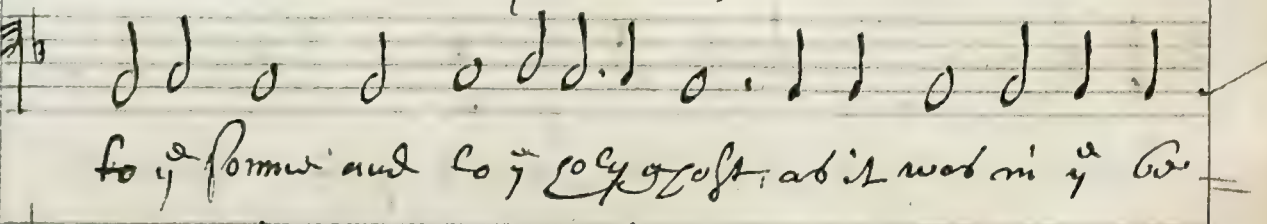 to yᵉ sonne and to yᵉ holy gost, as it was in yᵉ be